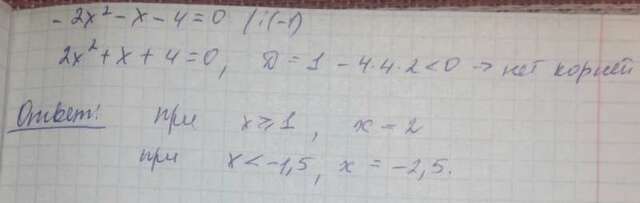 - 2x² - x - 4 = 0 | :(-1)
2x² + x + 4 = 0, D = 1 - 4·4·2 < 0 → нет корней
Ответ: при x ⩾ 1, x = 2
при x < -1,5, x = -2,5.